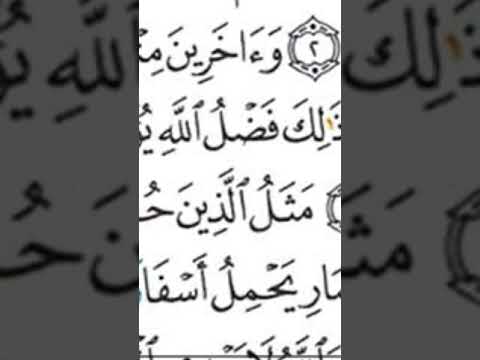 ٢ وَءَاخَرِينَ مِنْـ
ذَٰلِكَ فَضْلُ ٱللَّهِ يُؤْ
مَثَلُ ٱلَّذِينَ حُـ
ـمَارِ يَحْمِلُ أَسْفَا